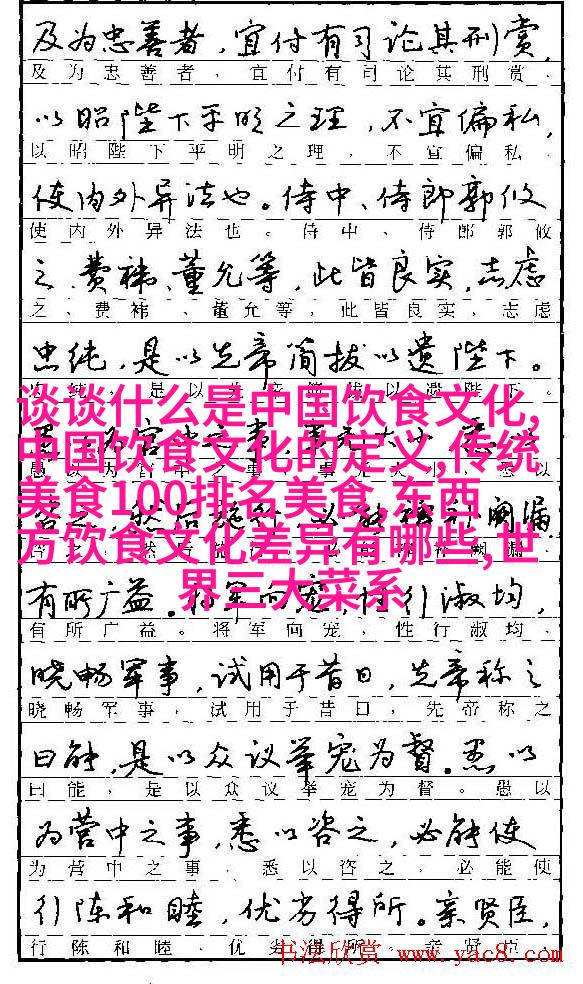 及为忠善者,宜付有司论其刑赏,
及为忠善者,宜付有司论其刑赏,
以昭陛下平明之理,不宜偏私,
以昭陛下平明之理,不宜偏私,
使内外异法也。侍中、侍郎郭攸
使内外异法也。侍中、侍郎郭攸
之、费祎、董允等,此皆良实,志虑
之、费祎、董允等,此皆良实,志虑
忠纯,是以先帝简拔以遗陛下。
谈谈什么是中国饮食文化,
中国饮食文化的定义,传统
美食100排名美食,东西
方饮食文化差异有哪些,世
界三大菜系
有所广益。将军向宠,性行淑均,
有所广益。将军向宠,性行淑均,
晓畅军事,试用于昔日,先帝称之
晓畅军事,试用于昔日,先帝称之
曰能,是以众议举宠为督。愚以
曰能,是以众议举宠为督。愚以
为营中之事,悉以咨之,必能使
为营中之事,悉以咨之,必能使
行陈和睦,优劣得所。亲贤臣,
行陈和睦,优劣得所。亲贤臣,
书法欣赏 www.yac8.com